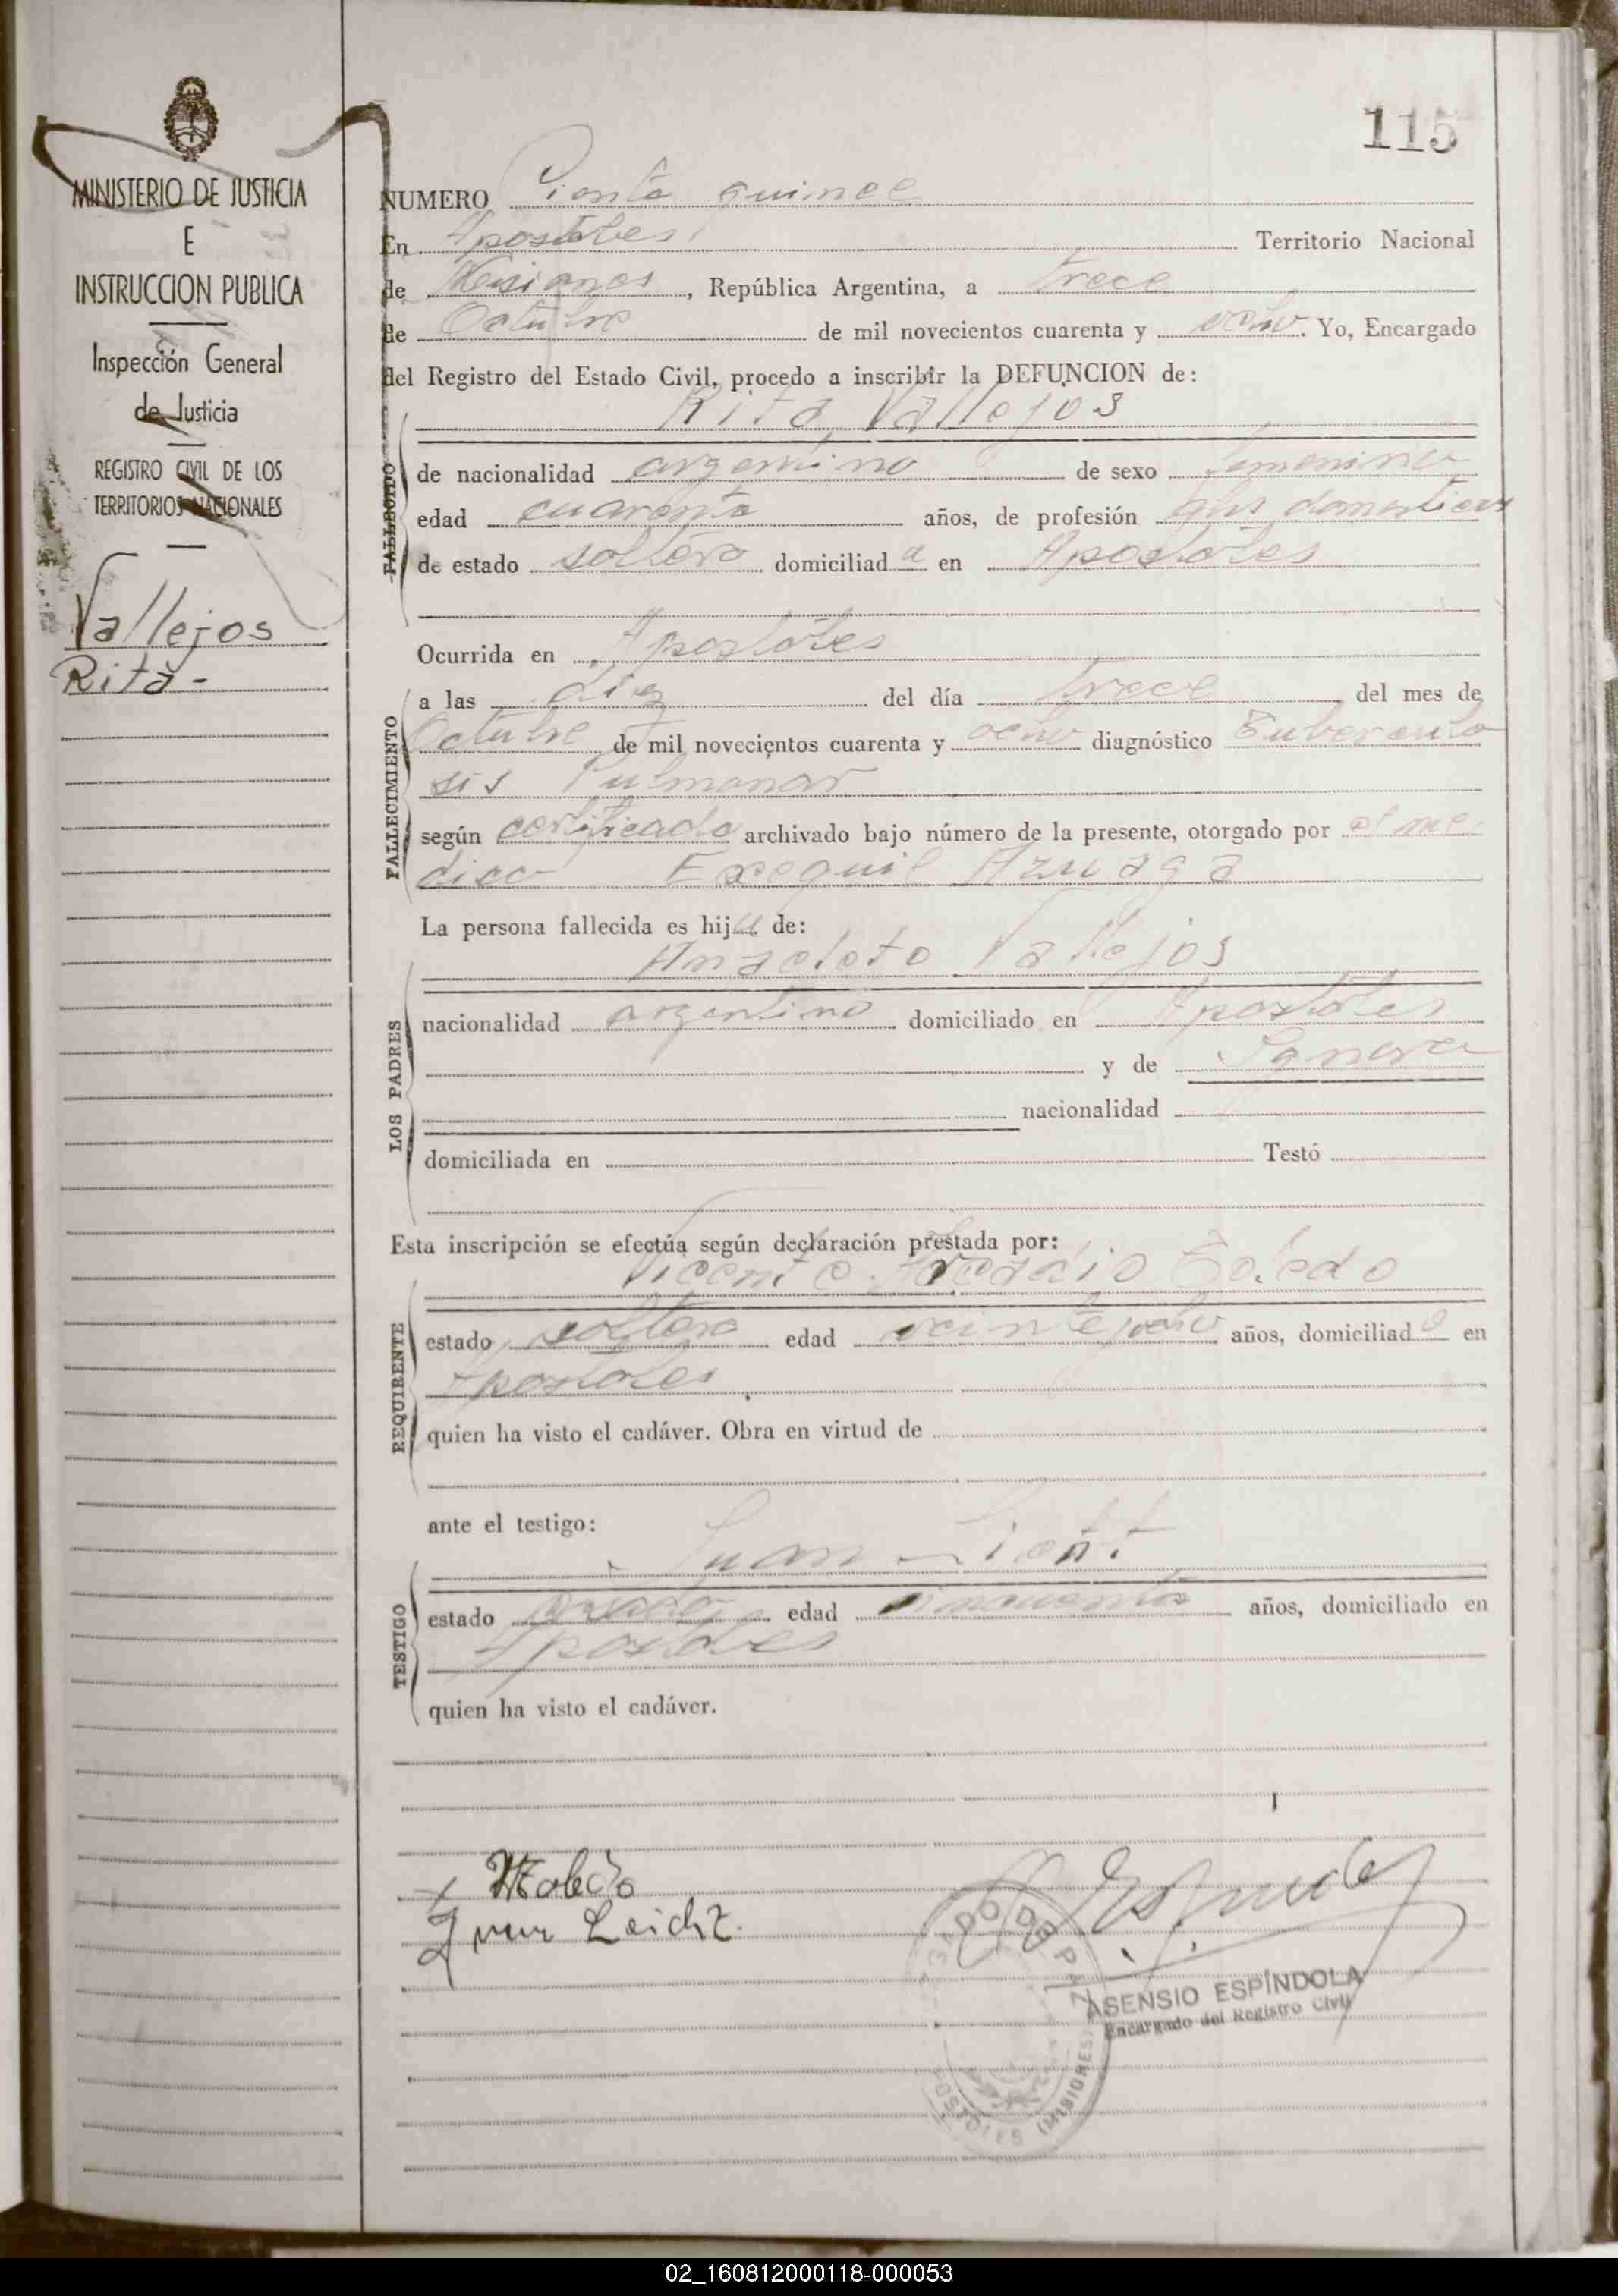 MINISTERIO DE JUSTICIA
E
INSTRUCCION PUBLICA
Inspección General
de Justicia
REGISTRO CIVIL DE LOS
TERRITORIOS NACIONALES
Vallejos
Rita -
115
NUMERO Ciento quince
En Apostoles, Territorio Nacional
de Misiones, República Argentina, a trece
de Octubre de mil novecientos cuarenta y ocho. Yo, Encargado
del Registro del Estado Civil, procedo a inscribir la DEFUNCION de:
Rita Vallejos
FALLECIDO
de nacionalidad argentina de sexo femenino
edad cuarenta años, de profesión qhs domesticos
de estado soltera domiciliada en Apostoles
Ocurrida en Apostoles
FALLECIMIENTO
a las diez del día trece del mes de
Octubre de mil novecientos cuarenta y ocho diagnóstico Tuberculo
sis Pulmonar
según certificado archivado bajo número de la presente, otorgado por el me-
dico Exequiel Azuaga
La persona fallecida es hija de:
LOS PADRES
Anacleto Vallejos
nacionalidad argentino domiciliado en Apostoles
y de Ignora
nacionalidad
domiciliada en Testó
Esta inscripción se efectúa según declaración prestada por:
REQUIRENTE
Vicente Toledo
estado soltero edad veinteocho años, domiciliado en
Apostoles
quien ha visto el cadáver. Obra en virtud de
ante el testigo:
TESTIGO
Juan
estado casado edad cincuenta años, domiciliado en
Apostoles
quien ha visto el cadáver.
Juan Leicht.
JUZGADO DE PAZ
APOSTOLES (MISIONES)
ASENSIO ESPÍNDOLA
Encargado del Registro Civil
02_160812000118-000053